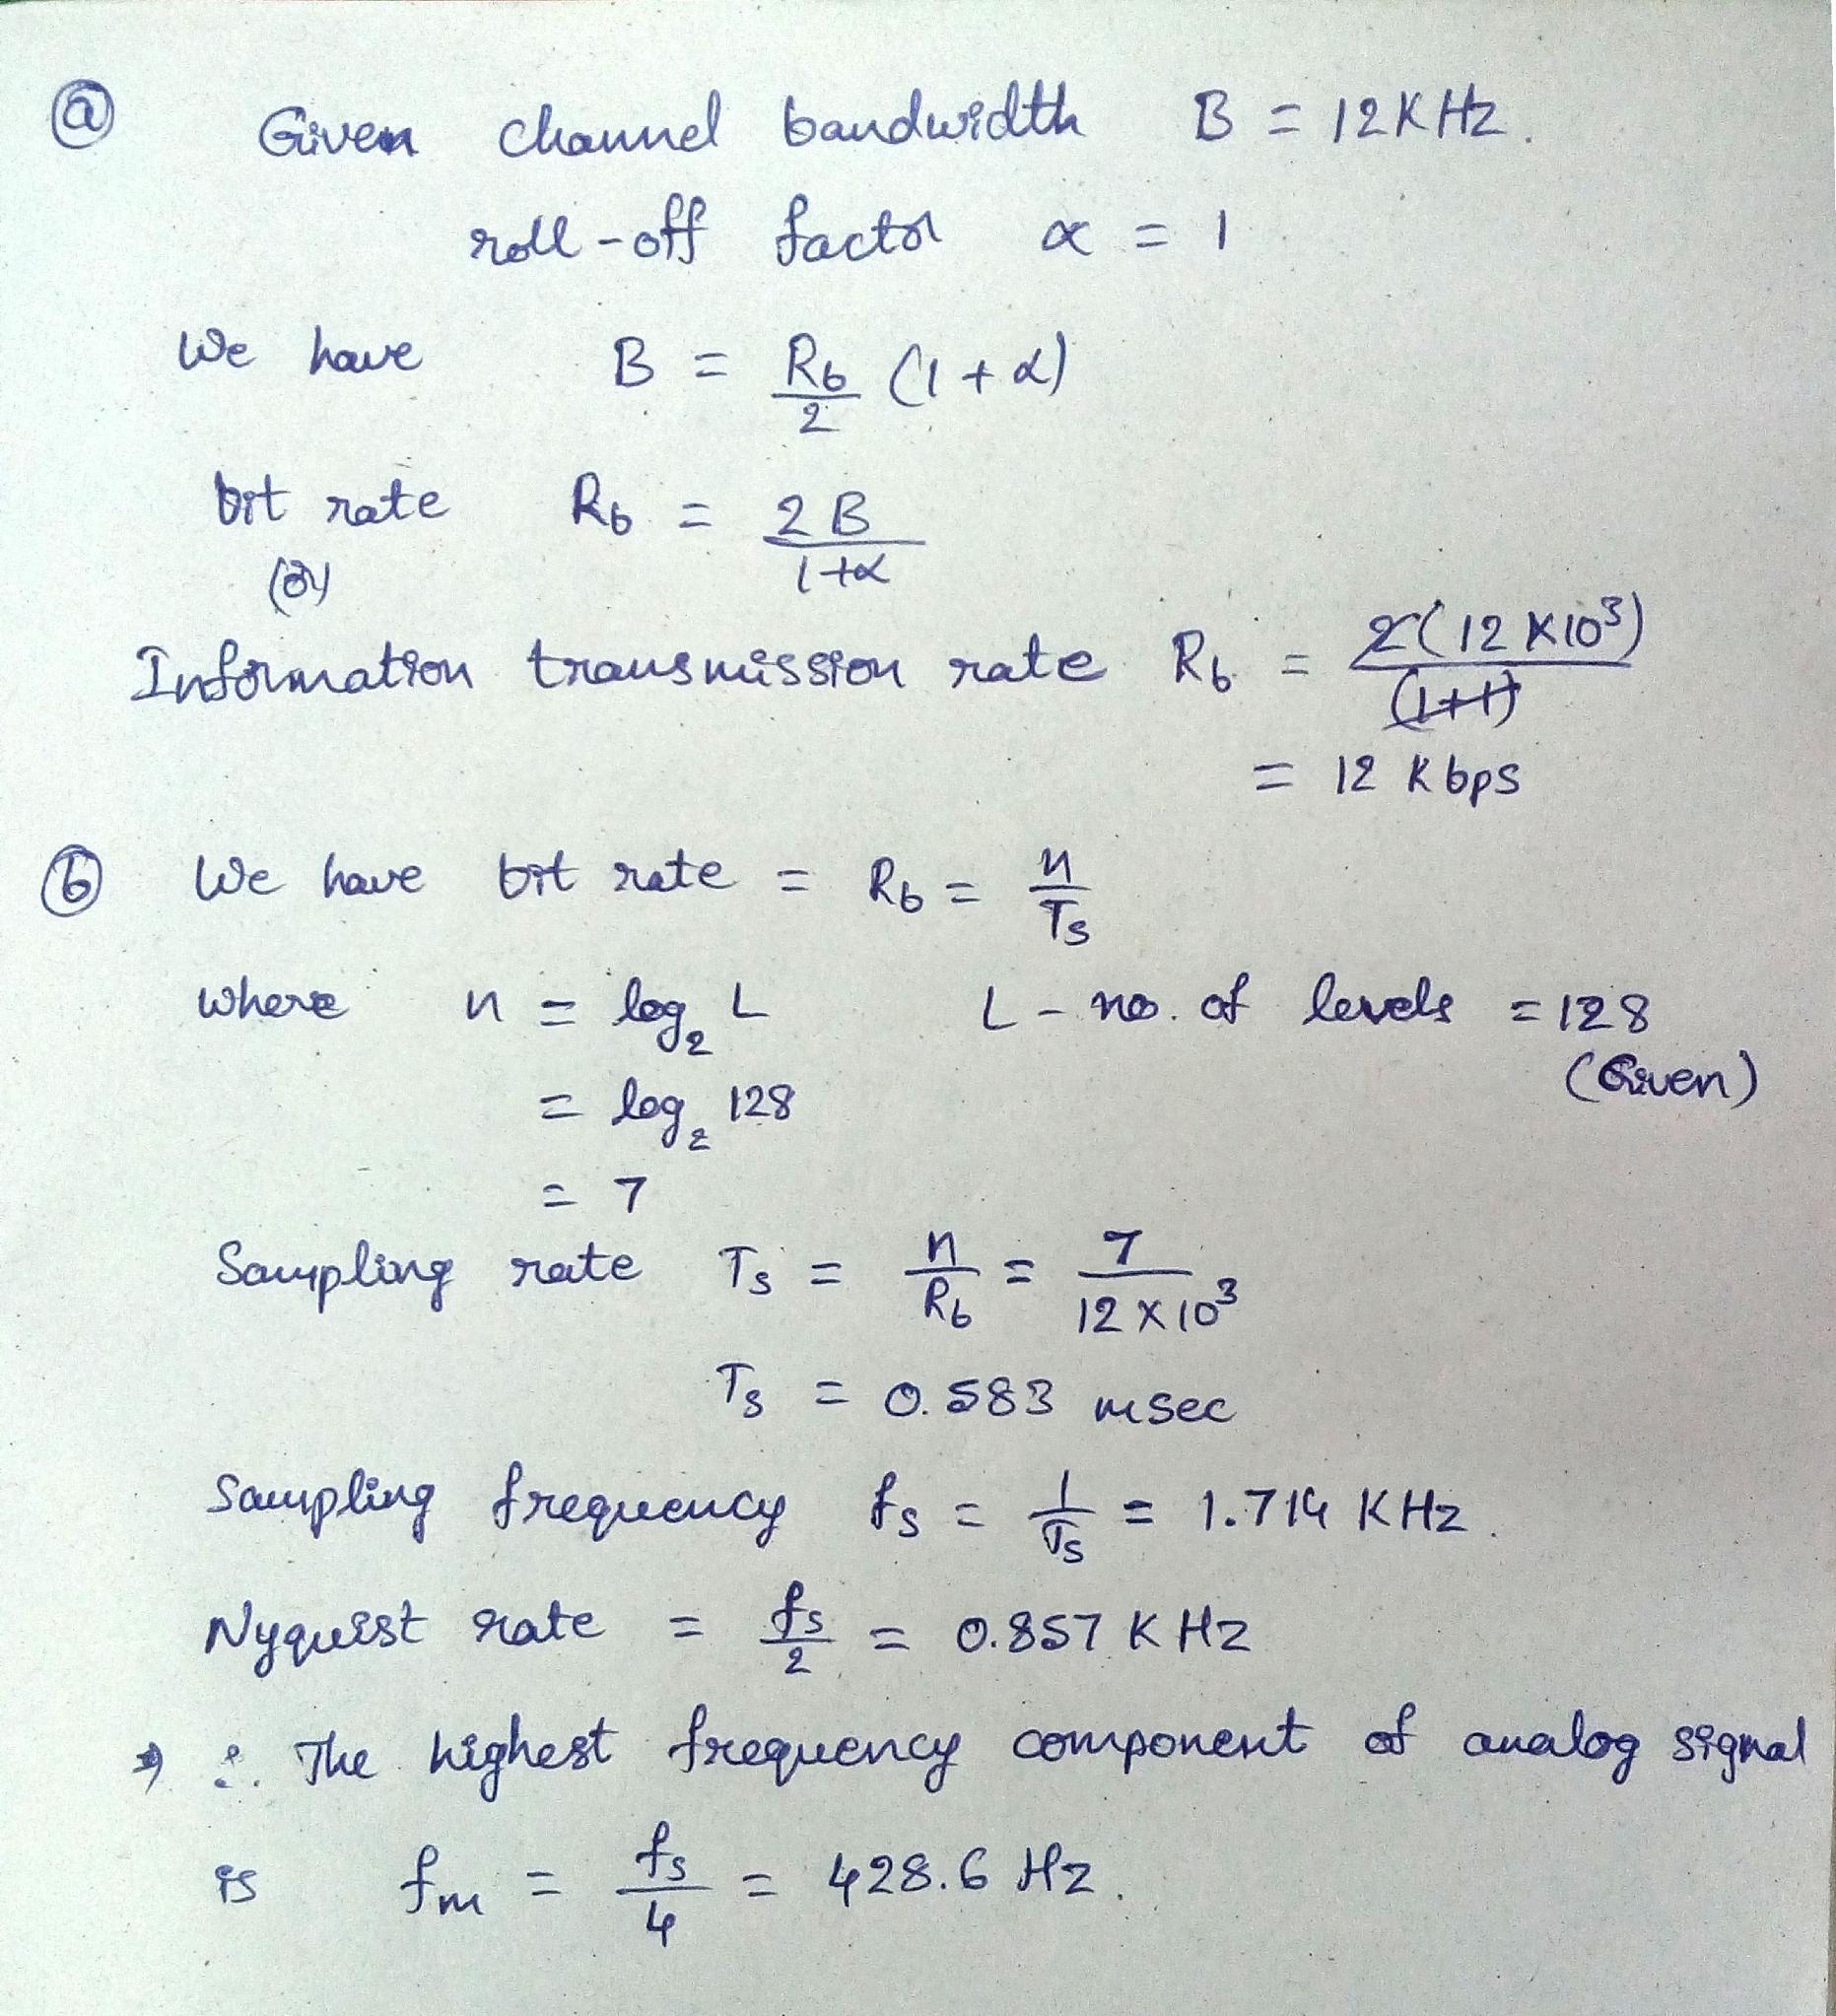 ⓐ Given channel bandwidth B = 12 KHz.
roll-off factor α = 1
We have B = Rb/2 (1 + α)
bit rate Rb = 2B/(1+α)
(or)
Information transmission rate Rb = 2(12 × 10³)/(1+1)
= 12 Kbps
ⓑ We have bit rate = Rb = n/Ts
where n = log₂ L L - no. of levels = 128
(Given)
= log₂ 128
= 7
Sampling rate Ts = n/Rb = 7/(12 × 10³)
Ts = 0.583 msec
Sampling frequency fs = 1/Ts = 1.714 KHz.
Nyquist rate = fs/2 = 0.857 KHz
∴ The highest frequency component of analog signal
is fm = fs/4 = 428.6 Hz.